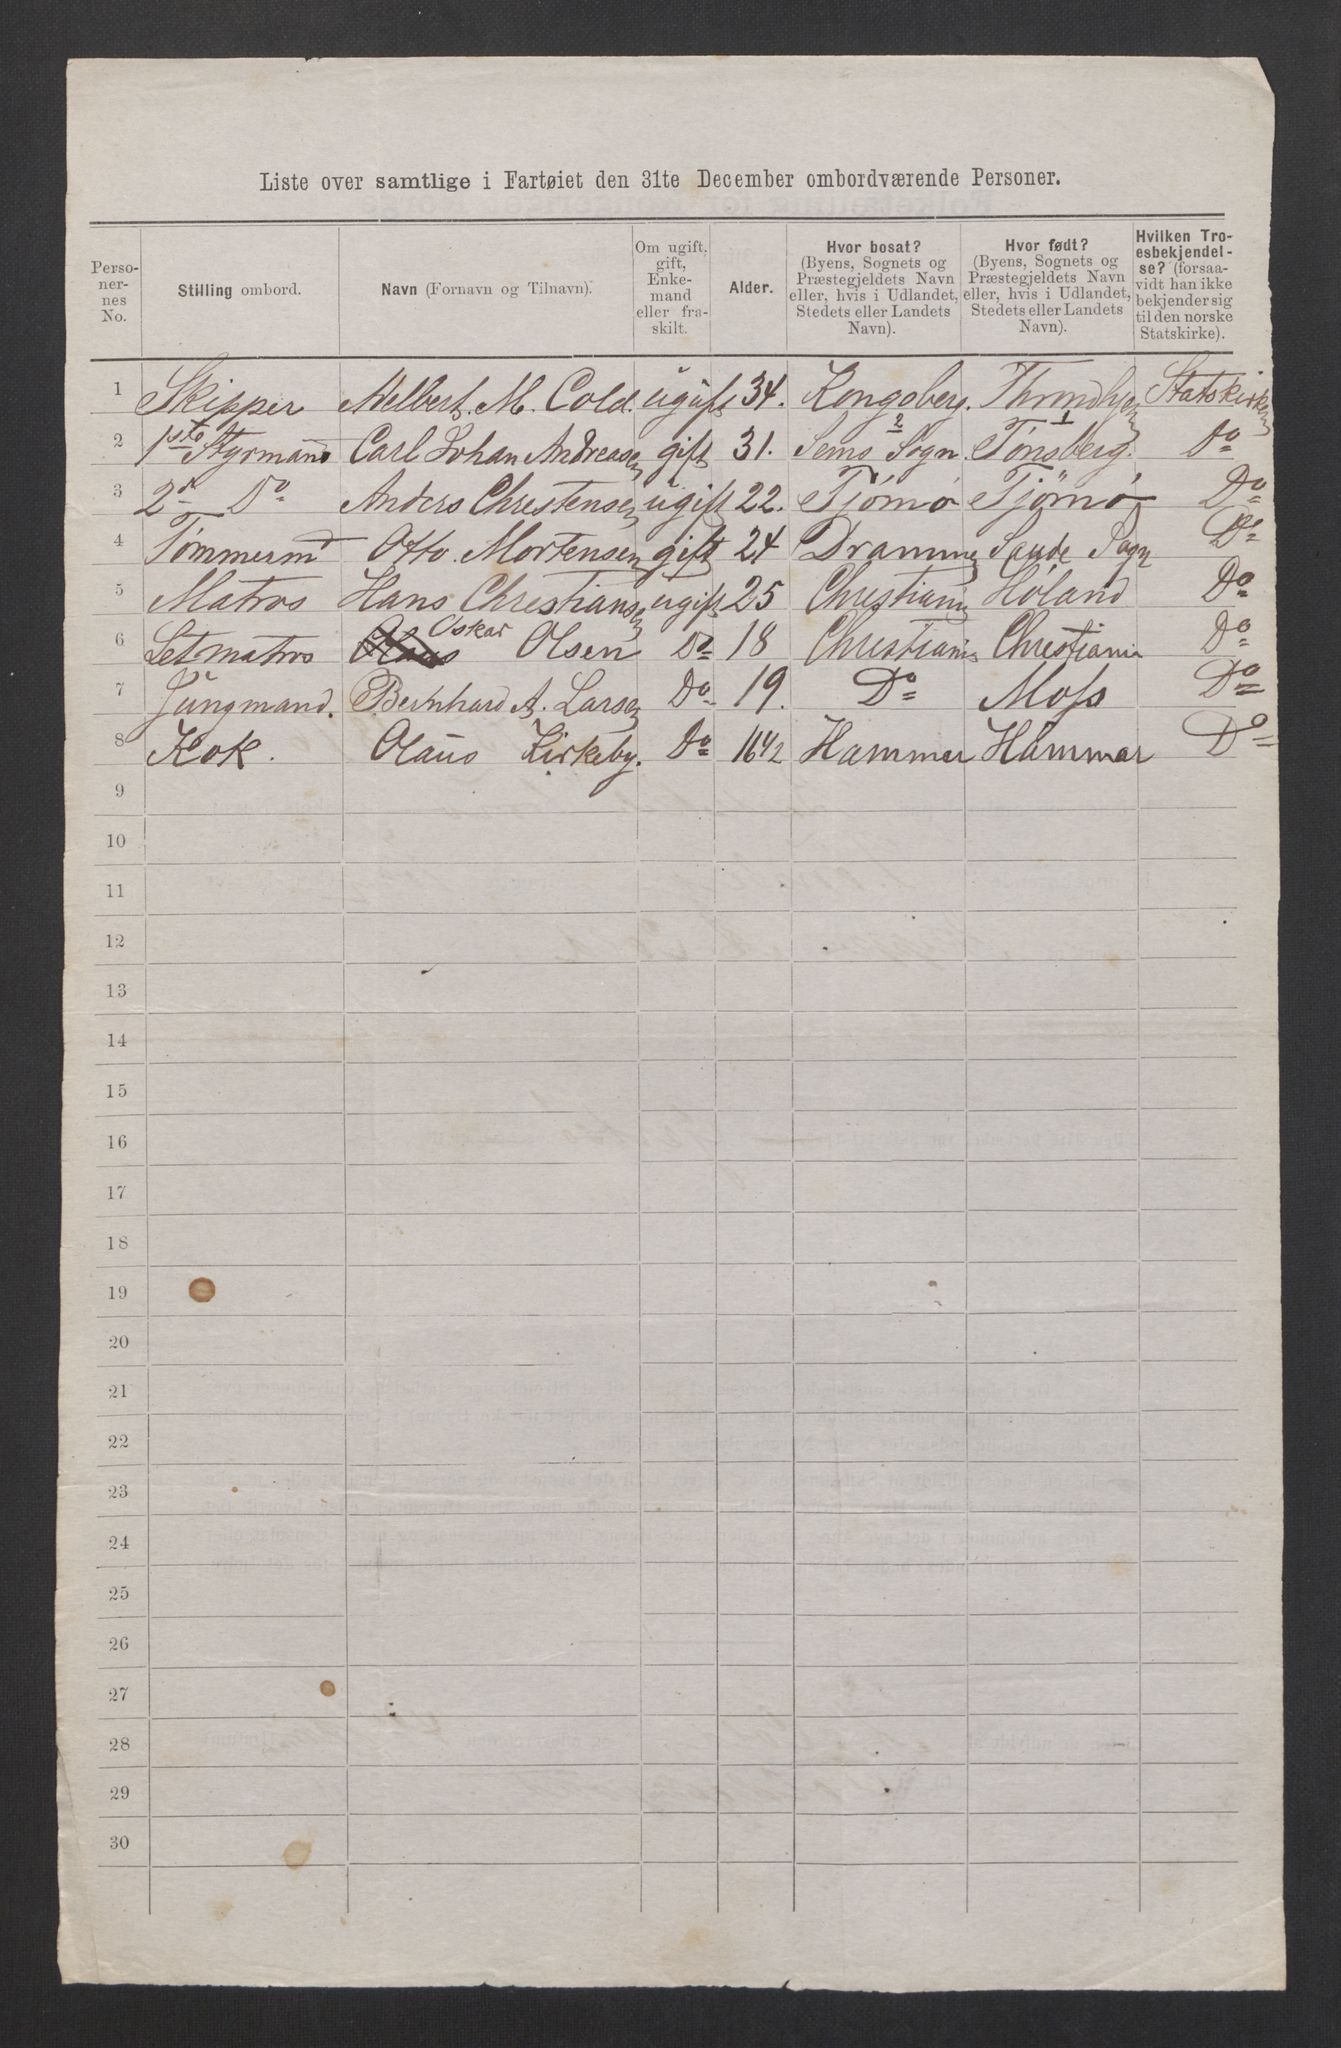 Liste over samtlige i Fartøiet den 31te December ombordværende Personer.
Perso-
ner-
nes
No.
Stilling ombord.
Navn (Fornavn og Tilnavn).
Om ugift,
gift,
Enke-
mand
eller fra-
skilt.
Alder.
Hvor bosat?
(Byens, Sognets og
Præstegjeldets Navn
eller, hvis i Udlandet,
Stedets eller Landets
Navn).
Hvor født?
(Byens, Sognets og
Præstegjeldets Navn
eller, hvis i Udlandet,
Stedets eller Landets
Navn).
Hvilken Tro-
esbekjendel-
se? (forsaa-
vidt han ikke
bekjender sig
til den norske
Statskirke).
1 Skipper M. Cold. ugift 34. Kongsberg. Throndhjem Statskirken
2 1ste Styrmand Carl Johan Andreasen gift 31. Sems 2 Sogn. Tønsberg. 1 Do
3 2d Do Anders Christensen ugift 22. Tjömö Tjömö Do
4 Tømmermd Otto Mortensen gift 24 Drammen Sande Sogn Do
5 Matros Hans Christiansen ugift 25 Christiania Höland Do
6 Letmatros Olaus Oskar Olsen Do 18 Christiania Christiania Do
7 Jüngmand. Bernhard A. Larsen Do 19. Do Moss Do
8 Kok. Olaüs Kirkeby. Do 16 1/2 Hammer Hammar Do
9
10
11
12
13
14
15
16
17
18
19
20
21
22
23
24
25
26
27
28
29
30